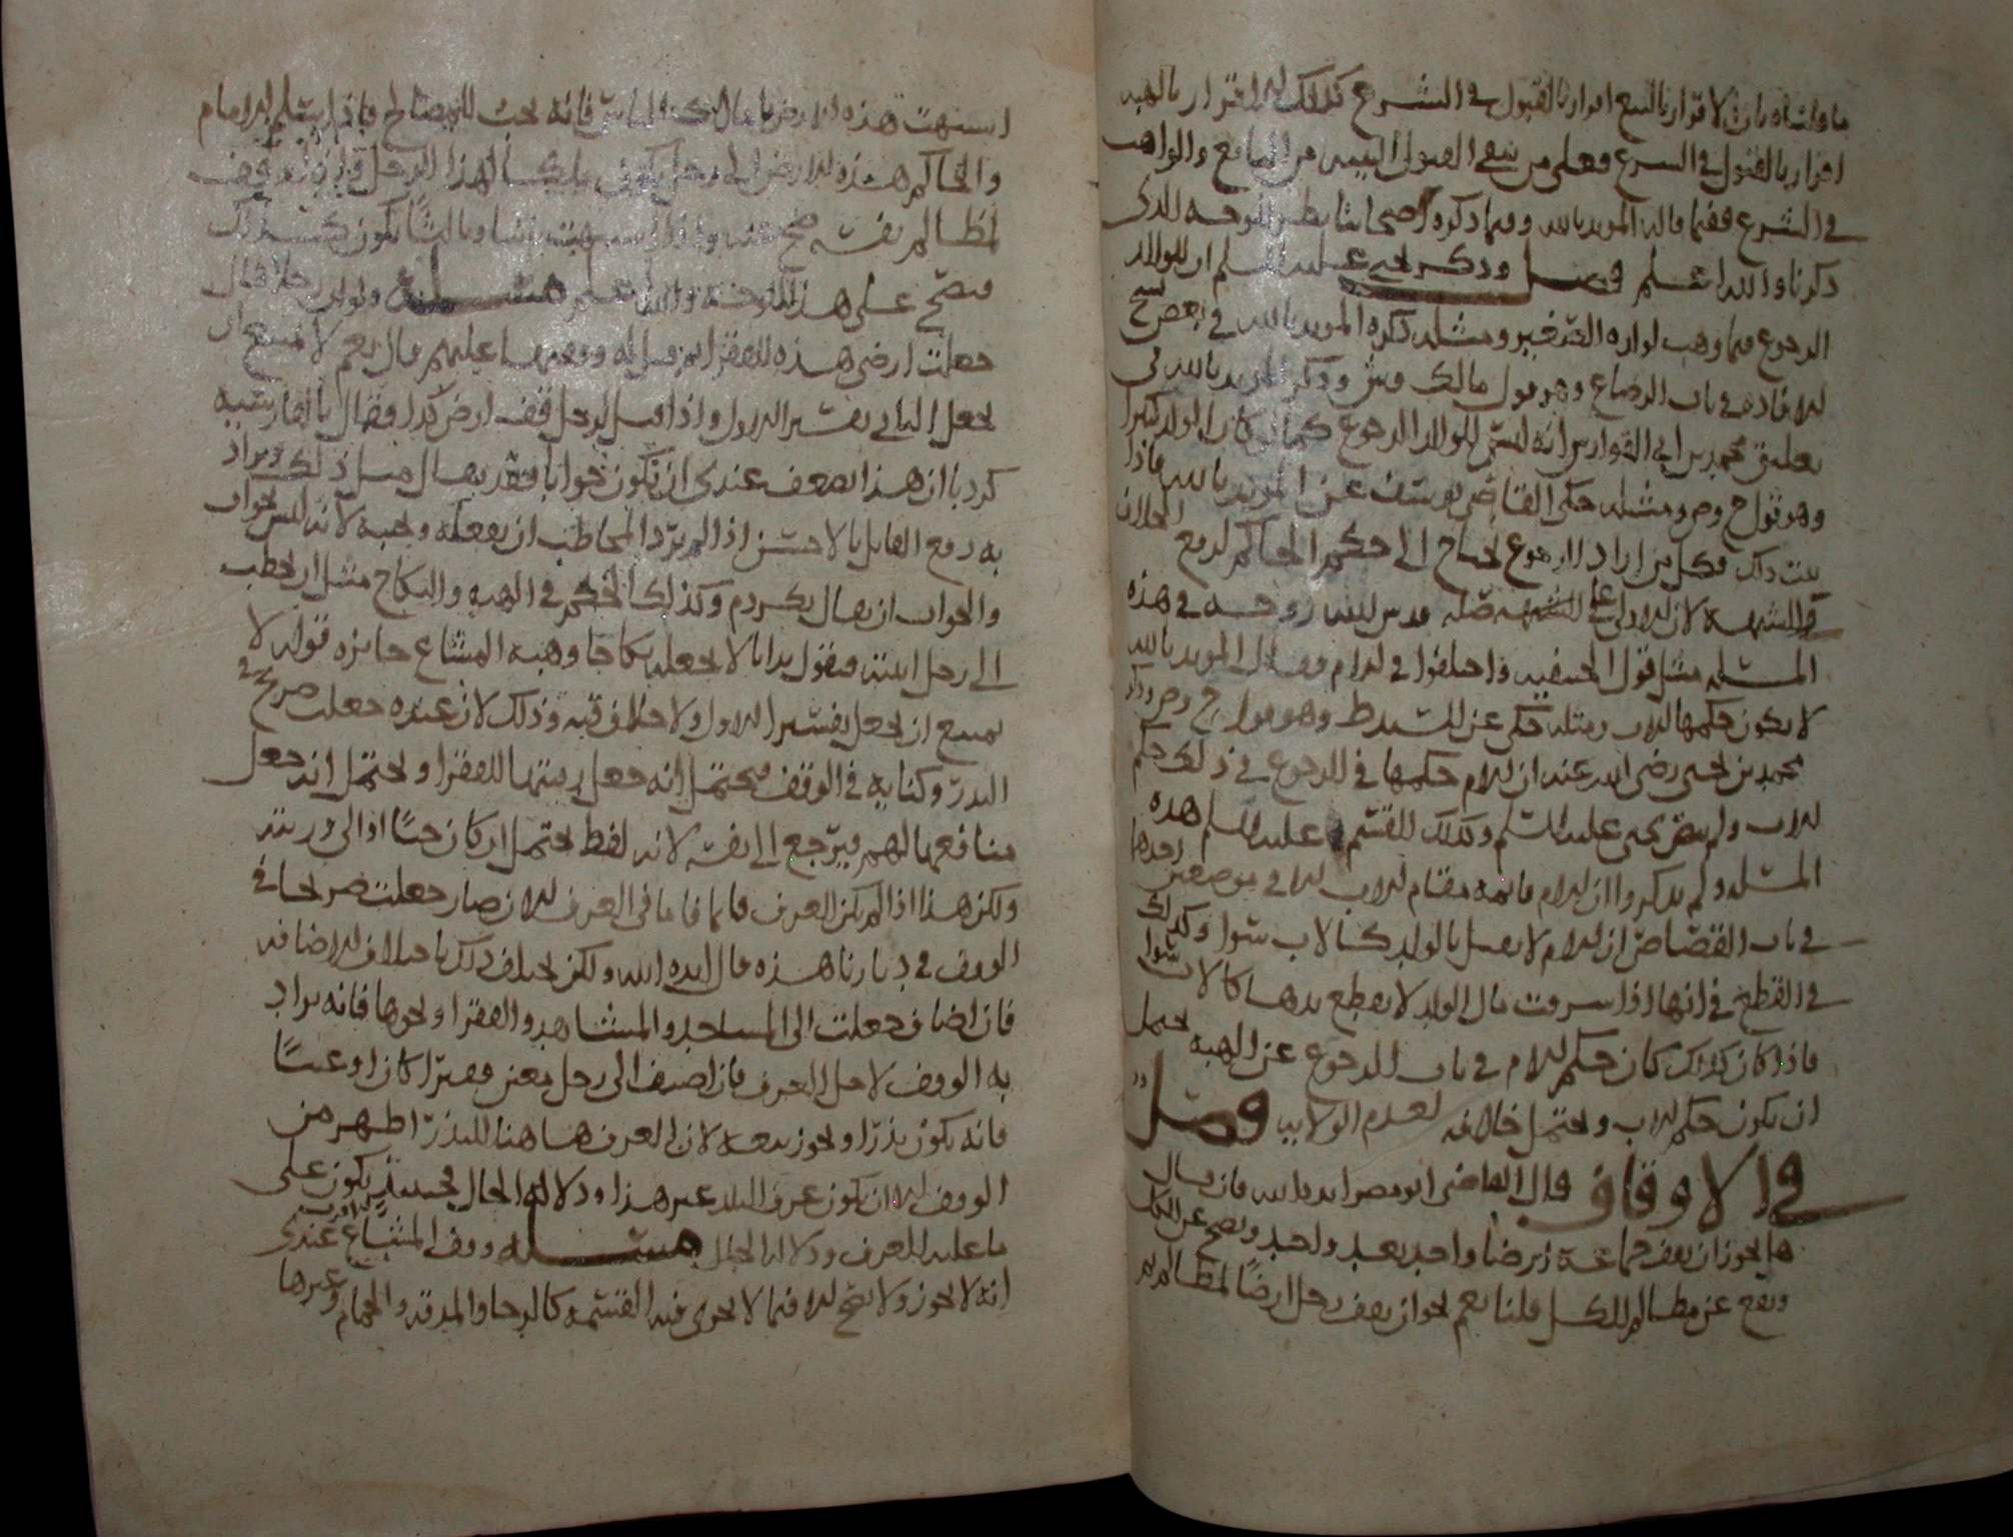 ما قلناه بان الاقرار بالبيع اقرار بالقبول في الشرع كذلك الاقرار بالهبه
اقرار بالقبول في الشرع فعلى من نفى القبول البينه من البايع والواهب
في الشرع ففيما قاله المويد بالله وفيما ذكره اصحابنا نظر للوجه الذى
ذكرنا والله اعلم فصل وذكر يحيى عليه السلم ان للوالد
الرجوع فيما وهب لولده الصغير ومثله ذكره المويد بالله في بعض نسخ
الافاده في باب الرضاع وهو قول مالك وش وذكر المويد بالله في
تعليق محمد بن ابي الفوارس انه ليس للوالد الرجوع كما لو كان الولد كبيرا
وهو قول ح وص ومثله حكى القاضى يوسف عن المويد بالله فاذا
ثبت ذلك فكل من اراد الرجوع يحتاج الى حكم الحاكم لرفع الخلاف
والشبهه لان الاولى على قدس الله روحه في هذه
المسله مثل قول الحنفيه واختلفوا في الام فقال المويد بالله
لا يكون حكمها الاب ومثله حكى عن السيد ط وهو قول ح وص وذكر
محمد بن يحيى رضى الله عنه ان الام حكمها في الرجوع في ذلك حكم
الاب ولم ينص يحيى عليه السلم وكذلك القسم عليه السلم هذه
المسله ولم يذكروا ان الام قائمه مقام الاب الا في موضعين احدها
في باب القصاص ان الام لا تقتل بالولد كالاب سوا وكذلك
في القطع في انها اذا سرقت مال الولد لا يقطع يدها كالاب سوا
فاذا كان كذلك كان حكم الام في باب الرجوع عن الهبه يحتمل
ان يكون حكم الاب ويحتمل خلافه لعدم الولايه فصل
في الاوقاف قال القاضى ابو مضر ايده الله فان قال
هل يجوز ان يقف جماعة ارضا واحد بعد واحد ويصح عن الكل
ويقع عن مظالم الكل قلنا نعم يجوز ان يقف رجل ارضا لمظالم
اشبهت هذه الارض بامالاكه الناس فانه يجب للمصالح فاذا سلم الامام
والحاكم هذه الارض الى رجل يكون ملكا لهذا الرجل فان وقف
لمظالم نفسه صح منه واذا ثانيا وثالثا يكون كذلك
فيصح على هذا الوجه والله اعلم مسله ولو ان رجلا قال
جعلت ارضى هذه للفقرا ثم قيل له وقفتها عليهم قال نعم لا يمنع ان
يجعل الثاني تفسير الاول واذا قيل لرجل قف ارض كذا فقال بالفارسيه
كردبا ان هذا يضعف عندى ان يكون جوابا فقد يقال مثل ذلك ويراد
به دفع القايل بالاحسن اذا لم يرد المخاطب ان يفعله ويجيبه لانه ليس بجواب
والجواب ان يقال بكردم وكذلك الحكم في الهبه والنكاح مثل ان يخطب
الى رجل ابنته فيقول بدابا لا يجعله نكاحا وهبه المشاع جايزه قوله لا
يمنع ان يجعل تفسير الاول ولا خلاف فيه وذلك لان عنده جعلت صريح في
النذر وكنايه في الوقف فيحتمل انه جعل رقبتها للفقرا ويحتمل انه جعل
منافعها لهم فيرجع الى نفسه لانه لفظ يحتمل ان كان حيا او الى ورثته
ولكن هذا اذا لم يكن العرف قايما فاما في العرف الان صار جعلت صريحا في
الوقف في ديارنا هذه قال ايده الله ولكن يختلف ذلك باختلاف الاضافه
فان اضاف جعلت الى المساجد والمشاهد والفقرا ونحوها فانه يراد
به الوقف لاجل العرف فان اضيف الى رجل معين فقيرا كان او غنيا
فانه يكون نذرا ويجوز بيعه لان العرف هاهنا للنذر اظهر من
الوقف الا ان يكون عرف البلد غير هذا ودلاله الحال فحينئذ يكون على
ما عليه العرف ودلاله الحال مسله وقف المشاع عندى
انه لا يجوز ولا يصح الا فيما لا يجرى فيه القسمه كالرحا والمدقه والحمام وغيرها